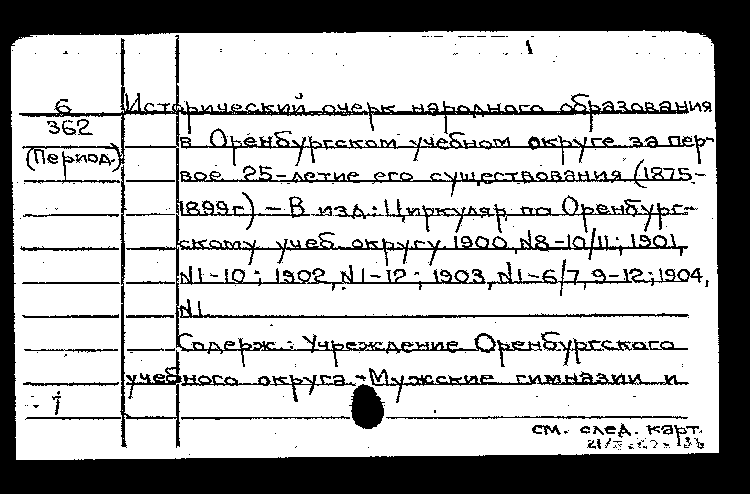 6 Исторический очерк народного образования
362 в Оренбургском учебном округе за пер-
(Период.) вое 25-летие его существования (1875-
1899г.) – В изд.: Циркуляр по Оренбург-
скому учеб. округу 1900, №8-10/11; 1901,
№1-10; 1902, №1-12; 1903, №1-6/7, 9-12; 1904,
№1
Содерж.: Учреждение Оренбургского
учебного округа.-Мужские гимназии и
см. след. карт.